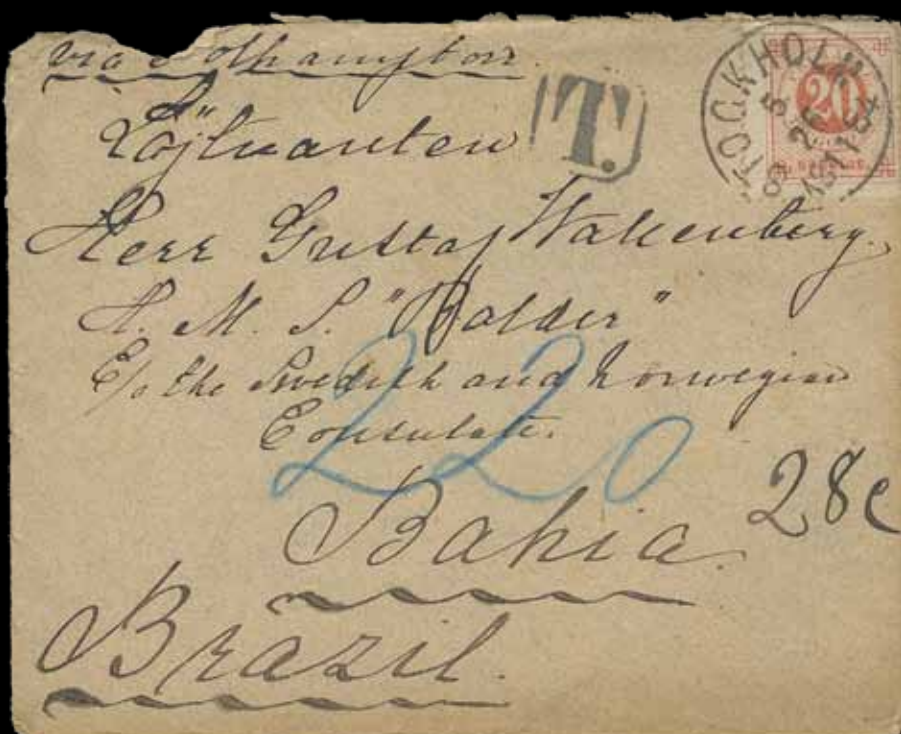 via Sothampton
T.
STOCKHOLM
20
Löjtnanten
Herr Gustaf Wallenberg.
H. M. S. "Balder"
C/o the Swedish and Norwegian
Consulate.
220
28c
Bahia.
Brazil.